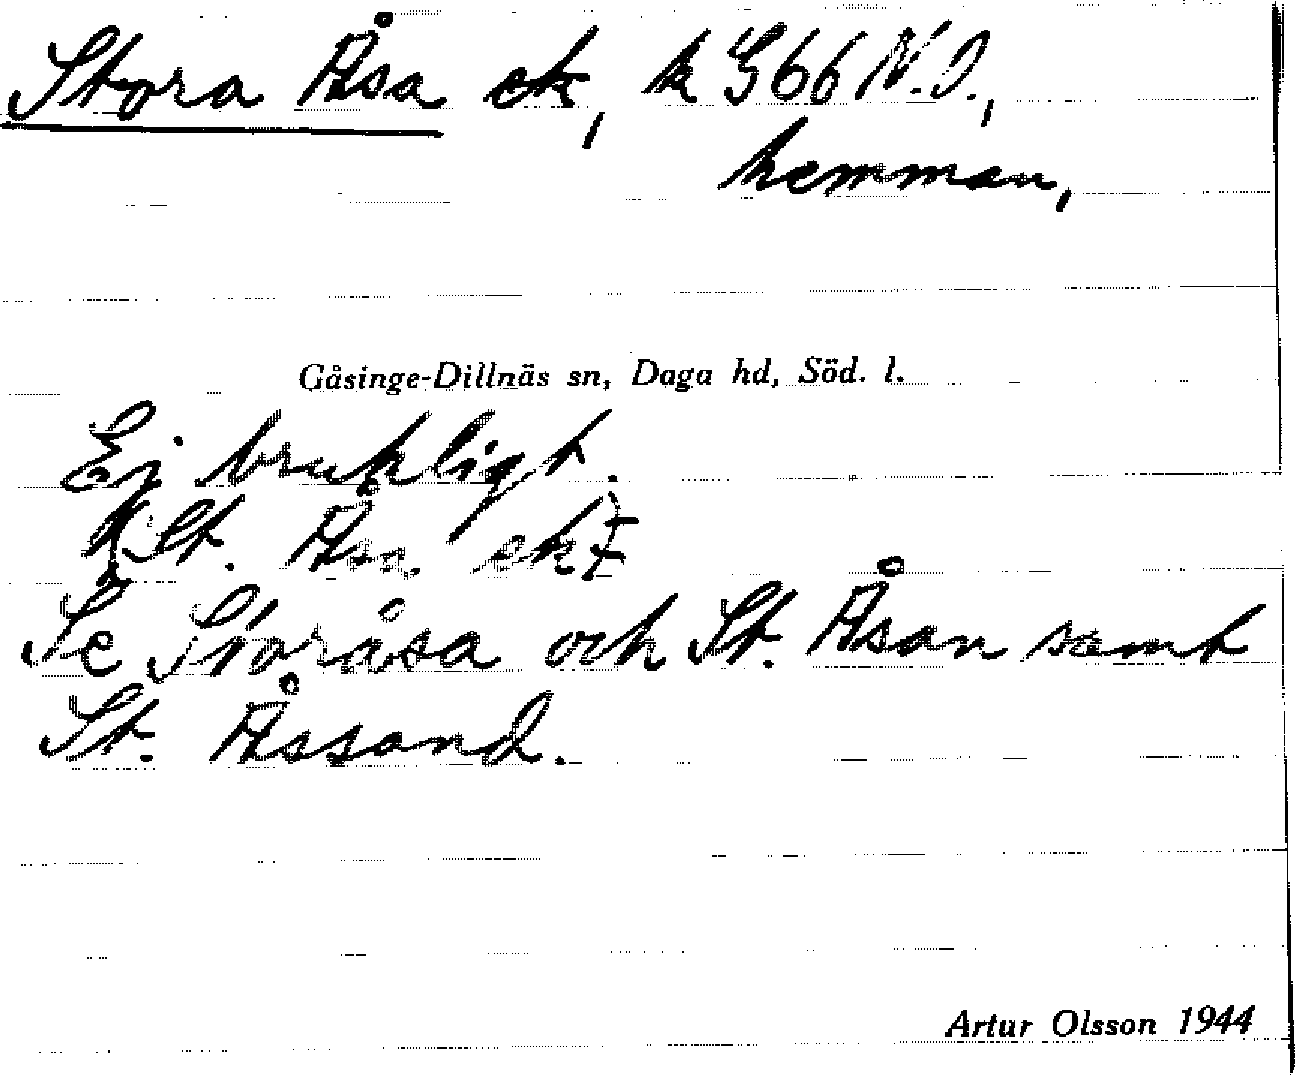 Stora Åsa ek, k G66 N.O.,
hemman,
Gåsinge-Dillnäs sn, Daga hd, Söd. l.
Ej brukligt.
St. Åsa ek
Se Storåsa och St. Åsan samt
St. Åssand.
Artur Olsson 1944